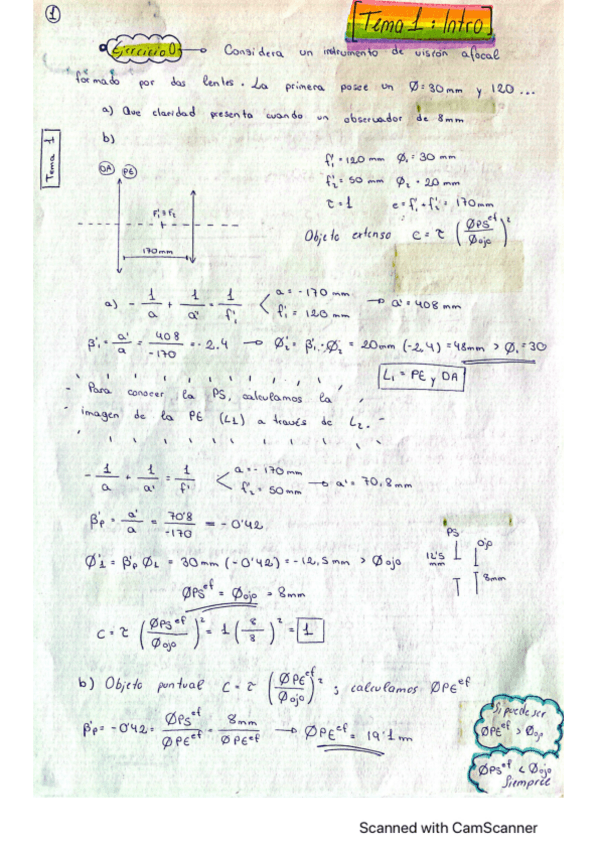 1
Tema 1: Intro
Ejercicio 0: Considera un instrumento de visión afocal
formado por dos lentes. La primera posee un Ø=30mm y 120...
a) Que claridad presenta cuando un observador de 8mm
b)
Tema 1
DA PE
F'₁=F₂
170mm
f'₁=120 mm Ø₁=30 mm
f'₂=50 mm Ø₂=20 mm
τ=1 e=f'₁+f'₂=170mm
Objeto extenso C=τ(ØPS^ef/Øojo)²
a) -1/a + 1/a' = 1/f'₁ < a=-170 mm f'₁=120 mm → a'=408 mm
β'₁=a'/a=408/-170=-2.4 → Ø'₂=β'₁·Ø'₂=20mm(-2,4)=48mm>Ø₁=30
L₁=PE y DA
Para conocer la PS, calculamos la
imagen de la PE (L1) a través de L₂.
-1/a + 1/a' = 1/f' < a=-170mm f'₂=50mm → a'=70,8mm
β'p=a'/a=70'8/-170=-0'42
PS ojo
12'5 mm
8mm
Ø'₁=β'p Ø₁=30mm(-0'42)=-12,5mm>Øojo
ØPS^ef=Øojo=8mm
C=τ(ØPS^ef/Øojo)²=1(8/8)²=1
b) Objeto puntual C=τ(ØPE^ef/Øojo)²; calculamos ØPE^ef
β'p=-0'42=ØPS^ef/ØPE^ef=8mm/ØPE^ef → ØPE^ef=19'1 m
Si puede ser
ØPE^ef>Øojo
ØPS^ef<Øojo
Siempre
Scanned with CamScanner